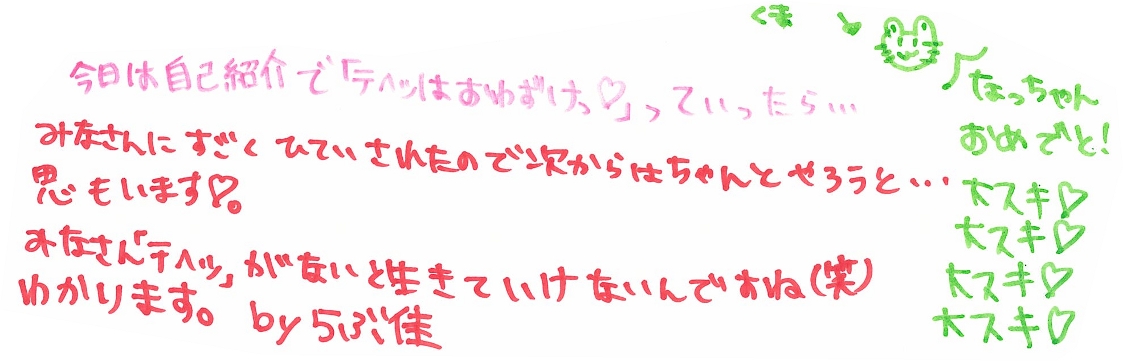 今日は自己紹介で「テヘッはおゆずけっ♡」っていったら…
みなさんにすごくひていされたので次からはちゃんとやろうと…
思もいます♡。
みなさん「テヘッ」がないと生きていけないんですね(笑)
わかります。 by らぶ佳
くま
「なっちゃん
おめでと!
大スキ♡
大スキ♡
大スキ♡
大スキ♡